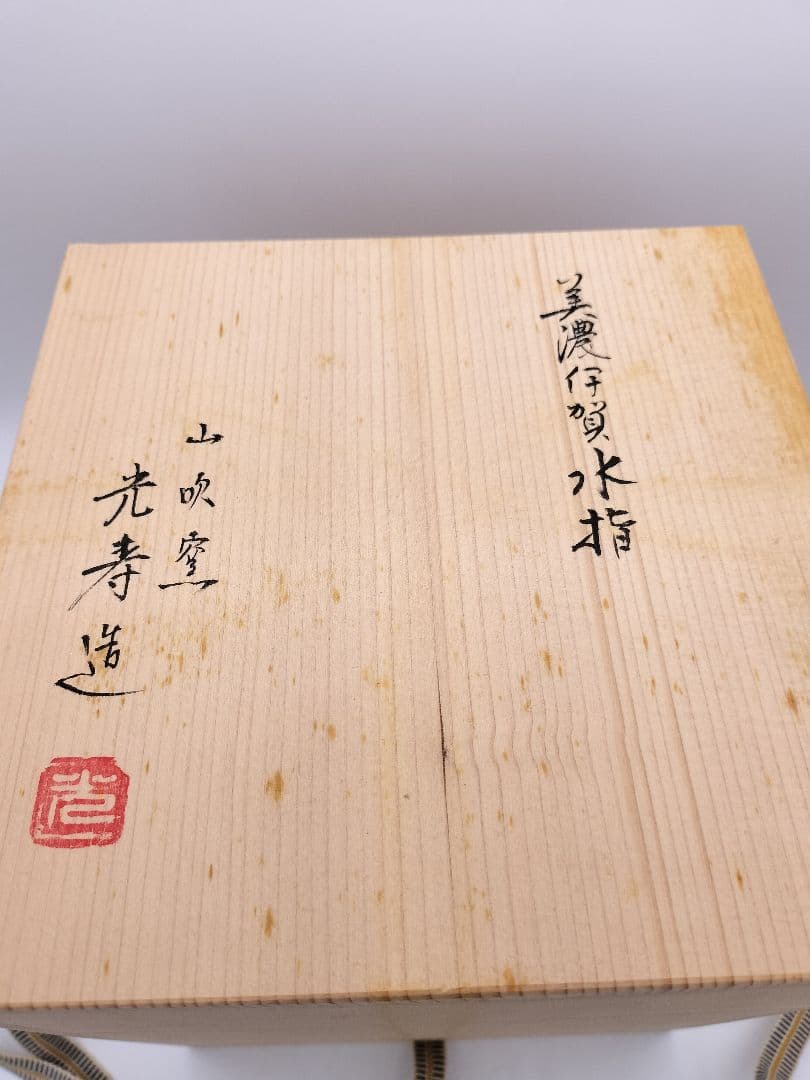 美濃伊賀水指
山吹窯
光寿造
光